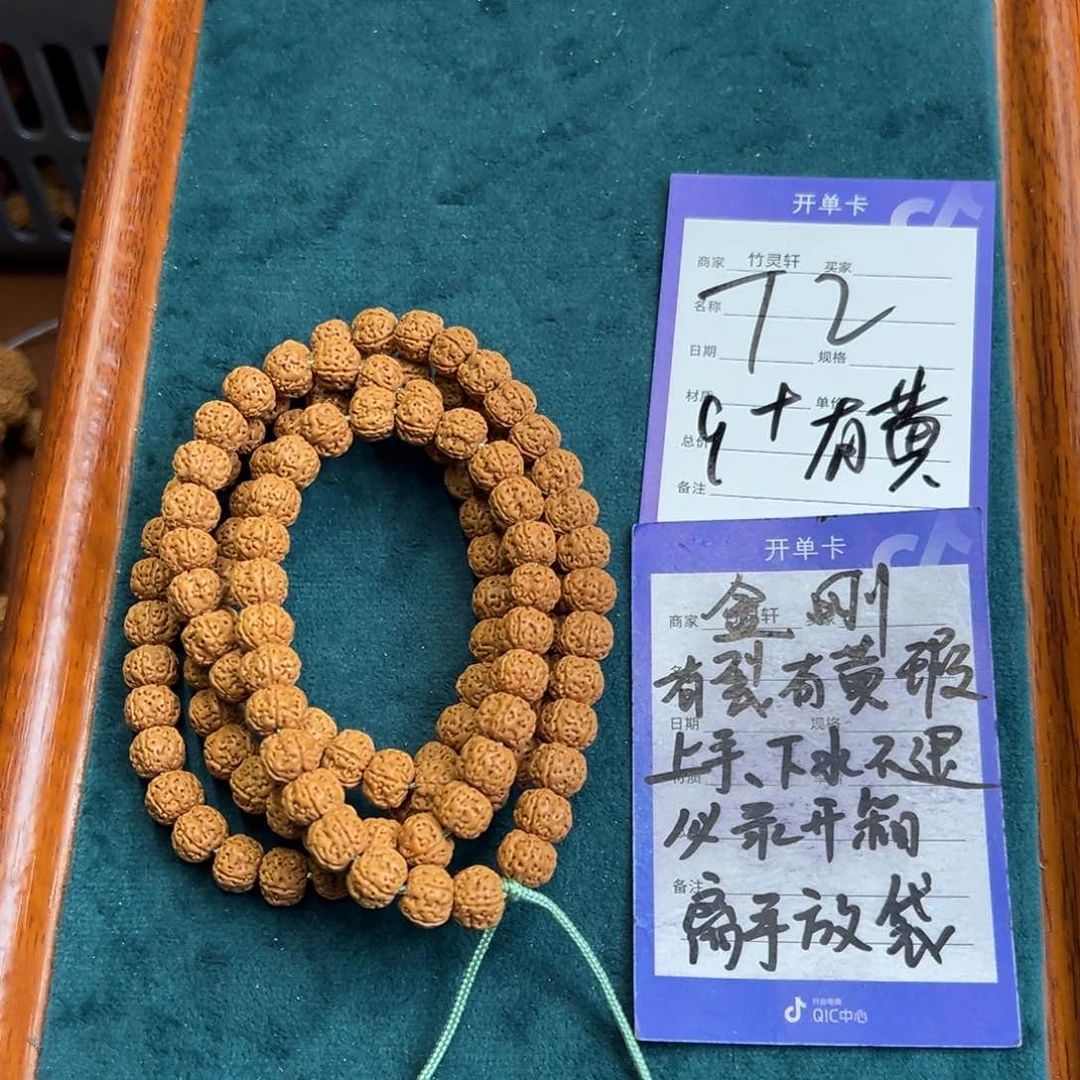 开单卡
商家 竹灵轩 买家
名称
72
日期 规格
材质 单价
9+有黄
总价
备注
开单卡
金刚
商家 轩
有裂有黄瑕
日期 规格
上手、下水不退
材质
必录开箱
备注
离手放袋
抖音电商
QIC中心